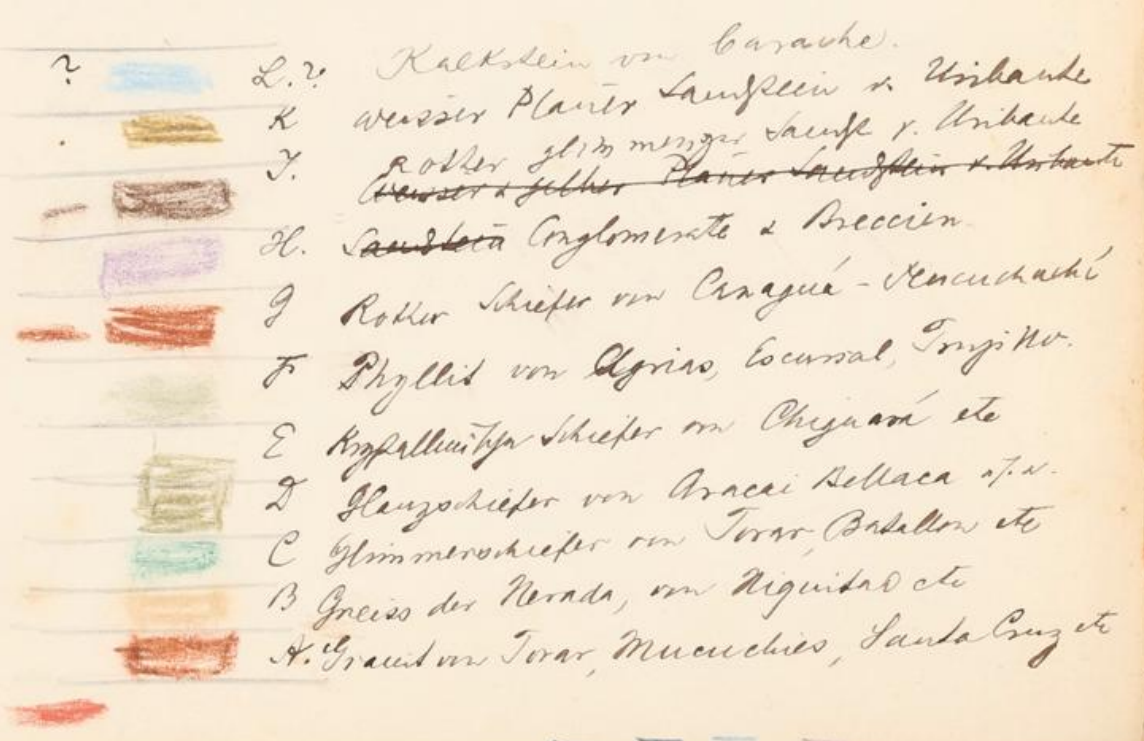 ? L.? Kalkstein von Carache.
K weisser Planer Sandstein v. Uribante
J. Rother glimmeriger Sandst v. Uribante
weisser & gelber Planer Sandstein v. Uribante
H. Sandstein Conglomerate & Breccien.
G Rother Schiefer von Canaguá - Mucuchachí
F Phyllit von Agrias, Escurral, Trujillo.
E Krystallinischer Schiefer von Chiguará etc
D Glanzschiefer von Aracai Bellaca
C Glimmerschiefer von Tovar, Batallon etc
B Gneiss der Nevada, von Niquitao etc
A. Granit von Tovar, Mucuchies, Santa Cruz etc